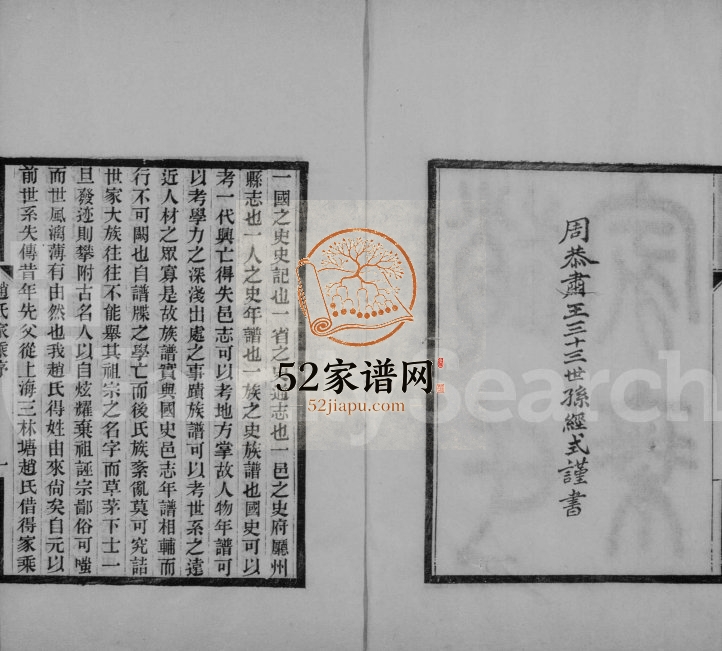 周恭肅王三十三世孫經式謹書
一國之史史記也一省之史通志也一邑之史府廳州
縣志也一人之史年譜也一族之史族譜也國史可以
考一代興亡得失邑志可以考地方掌故人物年譜可
以考學力之深淺出處之事蹟族譜可以考世系之遠
近人材之眾寡是故族譜實與國史邑志年譜相輔而
行不可闕也自譜牒之學亡而後氏族紊亂莫可究詰
世家大族往往不能舉其祖宗之名字而草茅下士一
旦發迹則攀附古名人以自炫耀棄祖誣宗鄙俗可嗤
而世風漓薄有由然也我趙氏得姓由來尙矣自元以
前世系失傳昔年先父從上海三林塘趙氏借得家乘
趙氏家乘序
一
52家谱网
52jiapu.com
MySearch